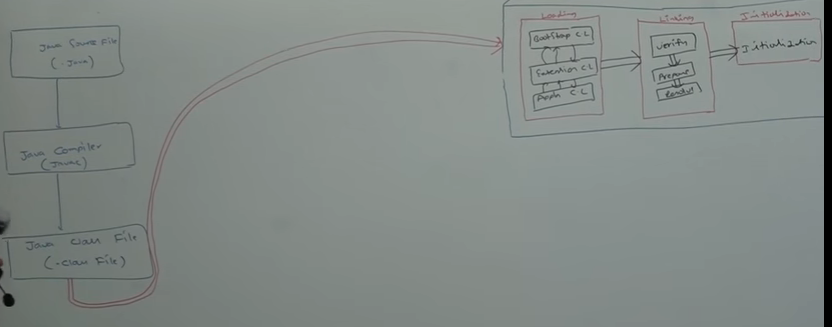 Java Source File
(.Java)
Java Compiler
(Javac)
Java Class File
(.class File)
Loading
Bootstrap C.L
Extention C.L
Appln C.L
Linking
Verify
Prepare
Initialization
Initialization